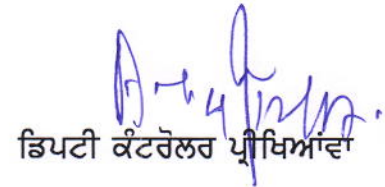 ਡਿਪਟੀ ਕੰਟਰੋਲਰ ਪ੍ਰੀਖਿਆਂਵਾ